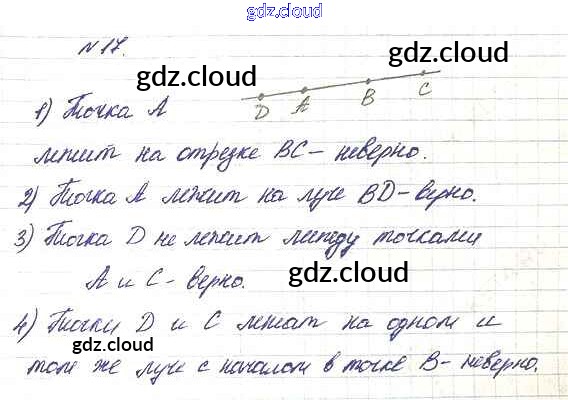 gdz.cloud
№17.
gdz.cloud
gdz.cloud
D A B C
1) Точка А
gdz.cloud
лежит на отрезке ВС – неверно.
2) Точка А лежит на луче BD – верно.
3) Точка D не лежит между точками
А и С – верно.
gdz.cloud
4) Точки D и С лежат на одном и
gdz.cloud
gdz.cloud
том же луче с началом в точке В – неверно.